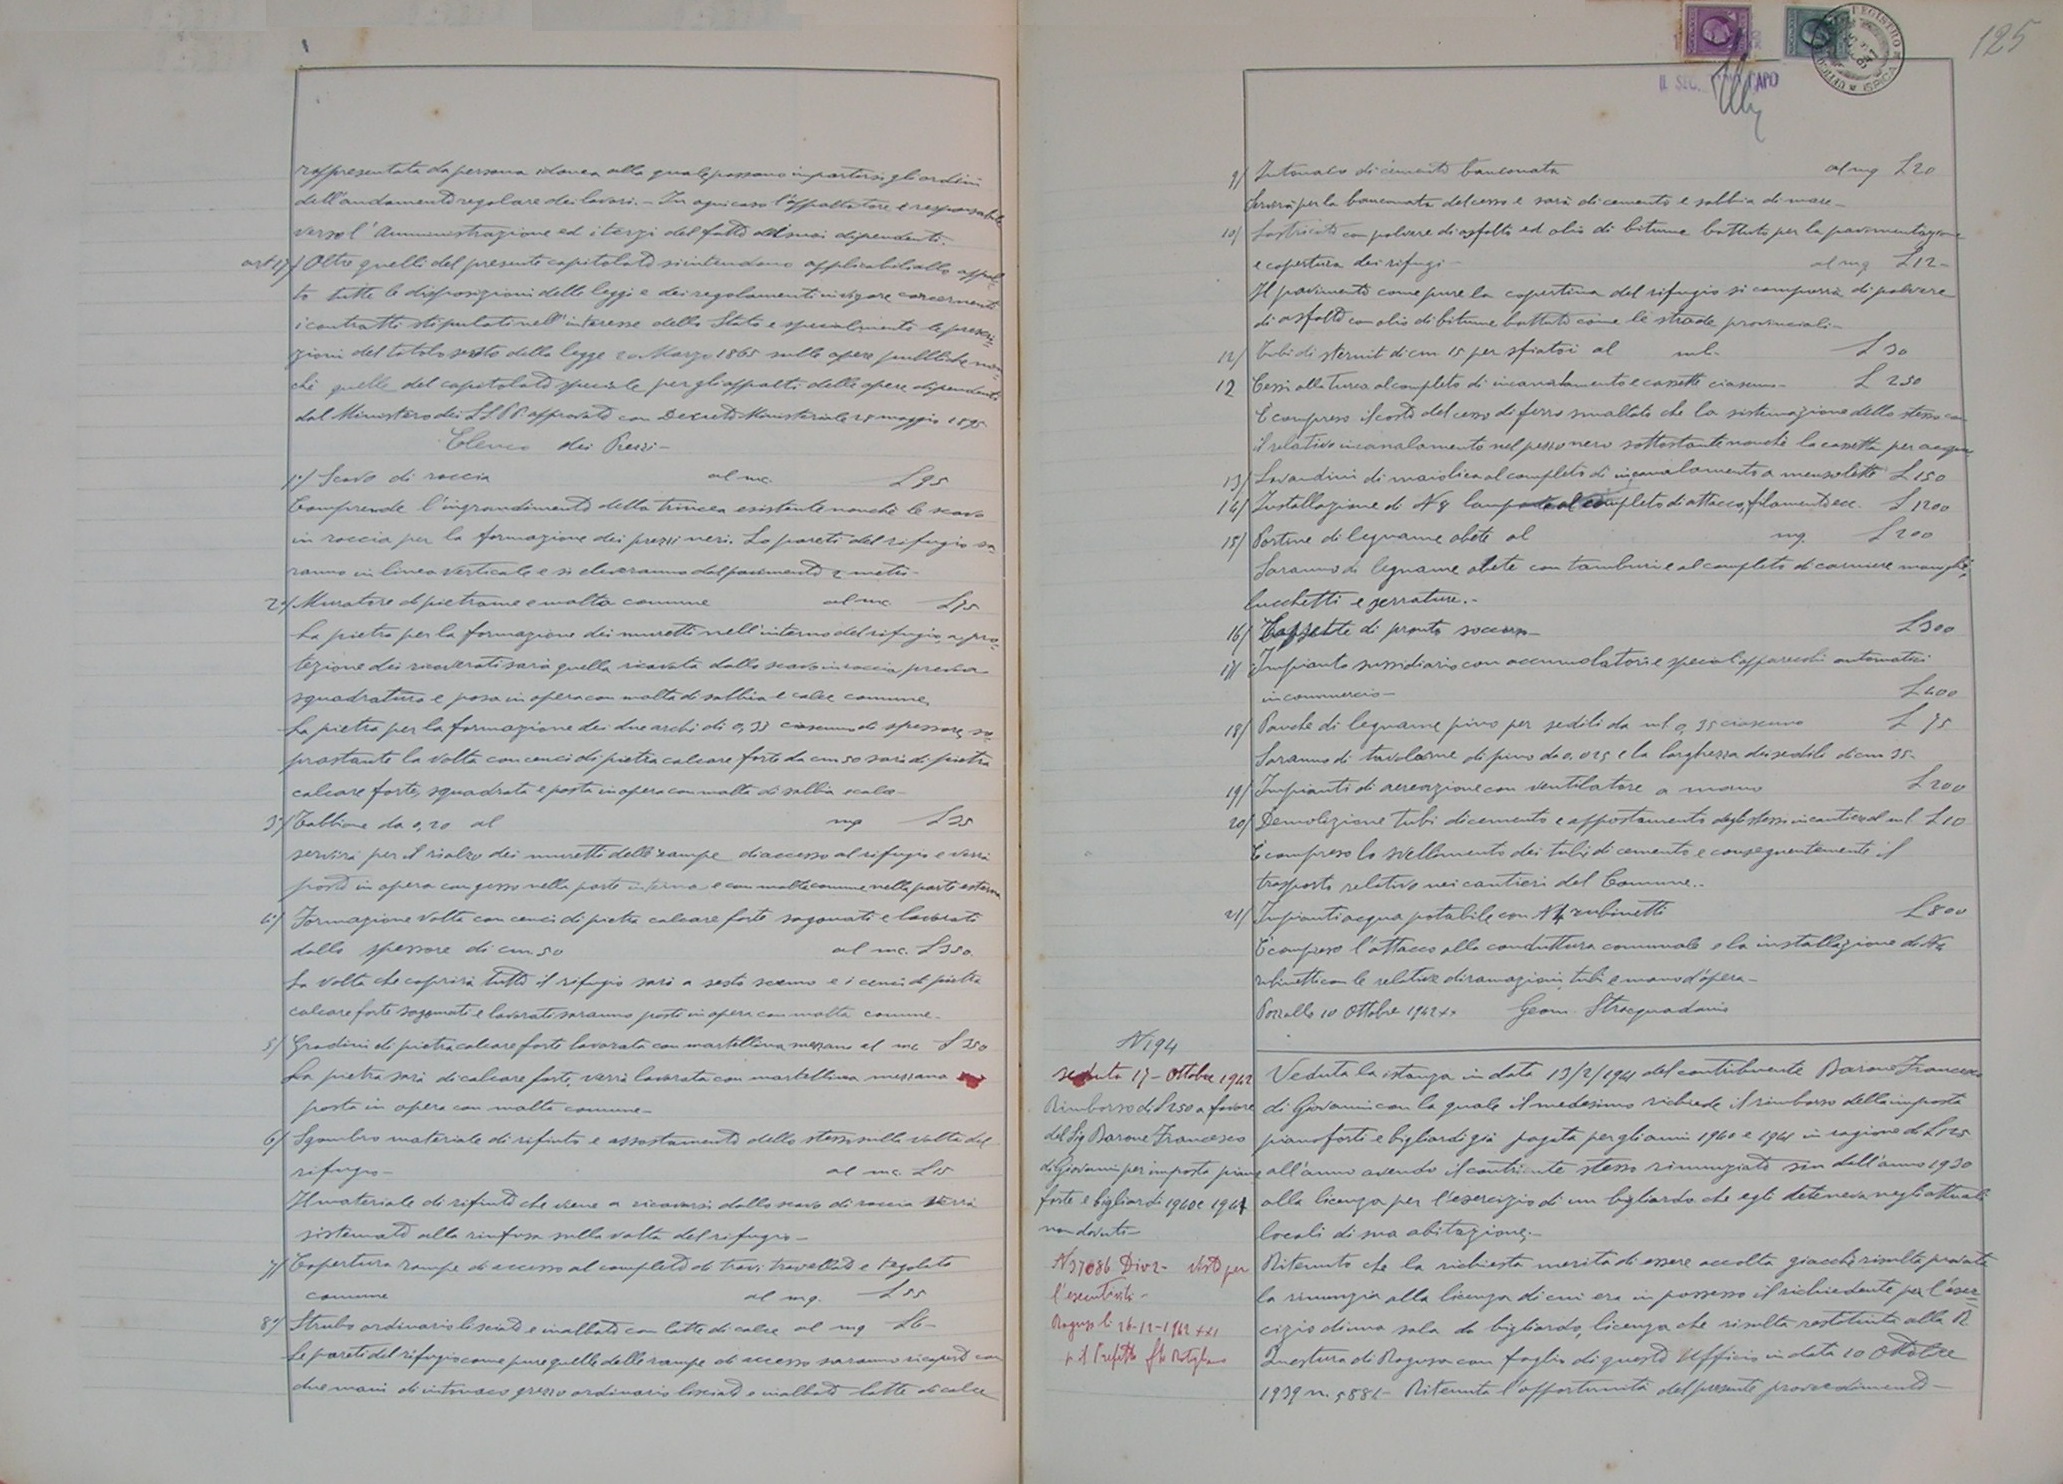 rappresentata da persona idonea alla quale possano impartirsi gli ordini
dell'andamento regolare dei lavori. - In ogni caso l'appaltatore è responsabile
verso l'Amministrazione ed i terzi del fatto dei suoi dipendenti.
art 17/ Oltre quelli del presente capitolato si intendono applicabili allo appal-
to tutte le disposizioni delle leggi e dei regolamenti in vigore concernenti
i contratti stipulati nell'interesse dello Stato e specialmente le prescri-
zioni del titolo sesto della legge 20 Marzo 1865 sulle opere pubbliche non-
chè quelle del capitolato speciale per gli appalti delle opere dipendenti
dal Ministero dei LL. PP. approvato con Decreto Ministeriale 28 maggio 1895
Elenco dei Prezzi -
1°/ Scavo di roccia al mc. L 95
Comprende l'ingrandimento della trincea esistente nonchè lo scavo
in roccia per la formazione dei pozzi neri. Le pareti del rifugio sa-
ranno in linea verticale e si eleveranno dal pavimento 2 metri -
2°/ Muratore di pietrame e malta comune al mc. L 75
La pietra per la formazione dei muretti nell'interno del rifugio, a pro-
tezione dei ricoverati sarà quella ricavata dallo scavo in roccia, previa
squadratura e posa in opera con malta di sabbia e calce comune,
La pietra per la formazione dei due archi di 0,33 ciascuno di spessore, so-
prastante la volta con cunei di pietra calcare forte da cm 50 sarà di pietra
calcare forte, squadrata e posta in opera con malta di sabbia e calce -
3°/ Gabbione da 0,20 al mq L 35
servirà per il rialzo dei muretti delle rampe di accesso al rifugio e verrà
posto in opera con gesso nella parte interna e con malta comune nella parte esterna
4°/ Formazione volta con cunei di pietra calcare forte sagomati e lavorati
dallo spessore di cm. 50 al mc. L 350
La volta che coprirà tutto il rifugio sarà a sesto scemo e i cunei di pietra
calcare forte sagomati e lavorati saranno posti in opera con malta comune. -
5/ Gradini di pietra calcare forte lavorata con martellina mezzana al mc L 250
La pietra sarà di calcare forte, verrà lavorata con martellina mezzana
posta in opera con malta comune -
6/ Sgombro materiale di rifiuto e assestamento dello stesso sulla volta del
rifugio - al mc. L 15
Il materiale di rifiuto che viene a ricavarsi dallo scavo di roccia verrà
sistemato alla rinfusa sulla volta del rifugio -
7/ Copertura rampe di accesso al completo di travi, travellato e tegolato
comune al mq. L 55
8°/ Strubo ordinario lisciato e imalbato con latte di calce al mq L 6 -
Le pareti del rifugio come pure quelle delle rampe di accesso saranno ricoperte con
due mani di intonaco grezzo ordinario lisciato e imalbato latte di calce
125
IL SEG. CAPO
9/ Intonaco di cemento banconata al mq L 20
Servirà per la banconata del cesso e sarà di cemento e sabbia di mare -
10/ Lastricato con polvere di asfalto ed olio di bitume battuto per la pavimentazione
e copertura dei rifugi - al mq L 12 -
Il pavimento come pure la copertina del rifugio si comporrà di polvere
di asfalto con olio di bitume battuto come le strade provinciali -
12/ Tubi di eternit di cm 15 per sfiatoi al ml. - L 30
12 Cessi alla turca al completo di incanalamento e cassette ciascuno - L 250
È compreso il costo del cesso di ferro smaltato che la sistemazione dello stesso con
il relativo incanalamento nel pozzo nero sottostante nonchè la cassetta per acqua
13/ Lavandini di maiolica al completo di incanalamento a mensolette L 150
14/ Installazione di N 8 lampade al completo di attacco, filamento ecc. L 1200
15/ Portine di legname abete al mq. L 200
Saranno di legname abete con tamburi e al completo di carniere maniglie,
lucchetti e serrature. -
16/ Cassette di pronto soccorso - L 300
17/ Impianto sussidiario con accumulatori e speciali apparecchi automatici
in commercio - L 400
18/ Panche di legname pino per sedili da ml 0,35 ciascuno L 75
Saranno di tavolame di pino da 0,025 e la larghezza dei sedili di cm 35 -
19/ Impianti di aereazione con ventilatore a mano L 200
20/ Demolizione tubi di cemento e appostamento degli stessi in cantiere al ml L 10
È compreso lo svellamento dei tubi di cemento e conseguentemente il
trasporto relativo nei cantieri del Comune. -
21/ Impianti acqua potabile con N 4 rubinetti L 800
È compreso l'attacco alla conduttura comunale e la installazione di N 4
rubinetti con le relative diramazioni, tubi e mano d'opera -
Pozzallo 10 Ottobre 1942 XX Geom. Stracquadanio
N 194
seduta 17 - Ottobre 1942
Rimborso di L 250 a favore
del Sig Barone Francesco
di Giovanni per imposta piano
forte e bigliardi 1940 e 1941
non dovute -
N 37086 Div 2 - Visto per
l'esecutività -
Ragusa li 26-12-1942 XXI
p. il Prefetto
Veduta la istanza in data 13/2/1941 del contribuente Barone Francesco
di Giovanni con la quale il medesimo richiede il rimborso della imposta
pianoforti e bigliardi già pagata per gli anni 1940 e 1941 in ragione di L 125
all'anno avendo il contriente stesso rinunziato sin dall'anno 1930
alla licenza per l'esercizio di un bigliardo che egli deteneva negli attuali
locali di sua abitazione; -
Ritenuto che la richiesta merita di essere accolta giacchè risulta provata
la rinunzia alla licenza di cui era in possesso il richiedente per l'eser-
cizio di una sala da bigliardo, licenza che risulta restituita alla R.
Questura di Ragusa con foglio di questo Ufficio in data 10 Ottobre
1939 n. 5886 - Ritenuta l'opportunità del presente provvedimento -